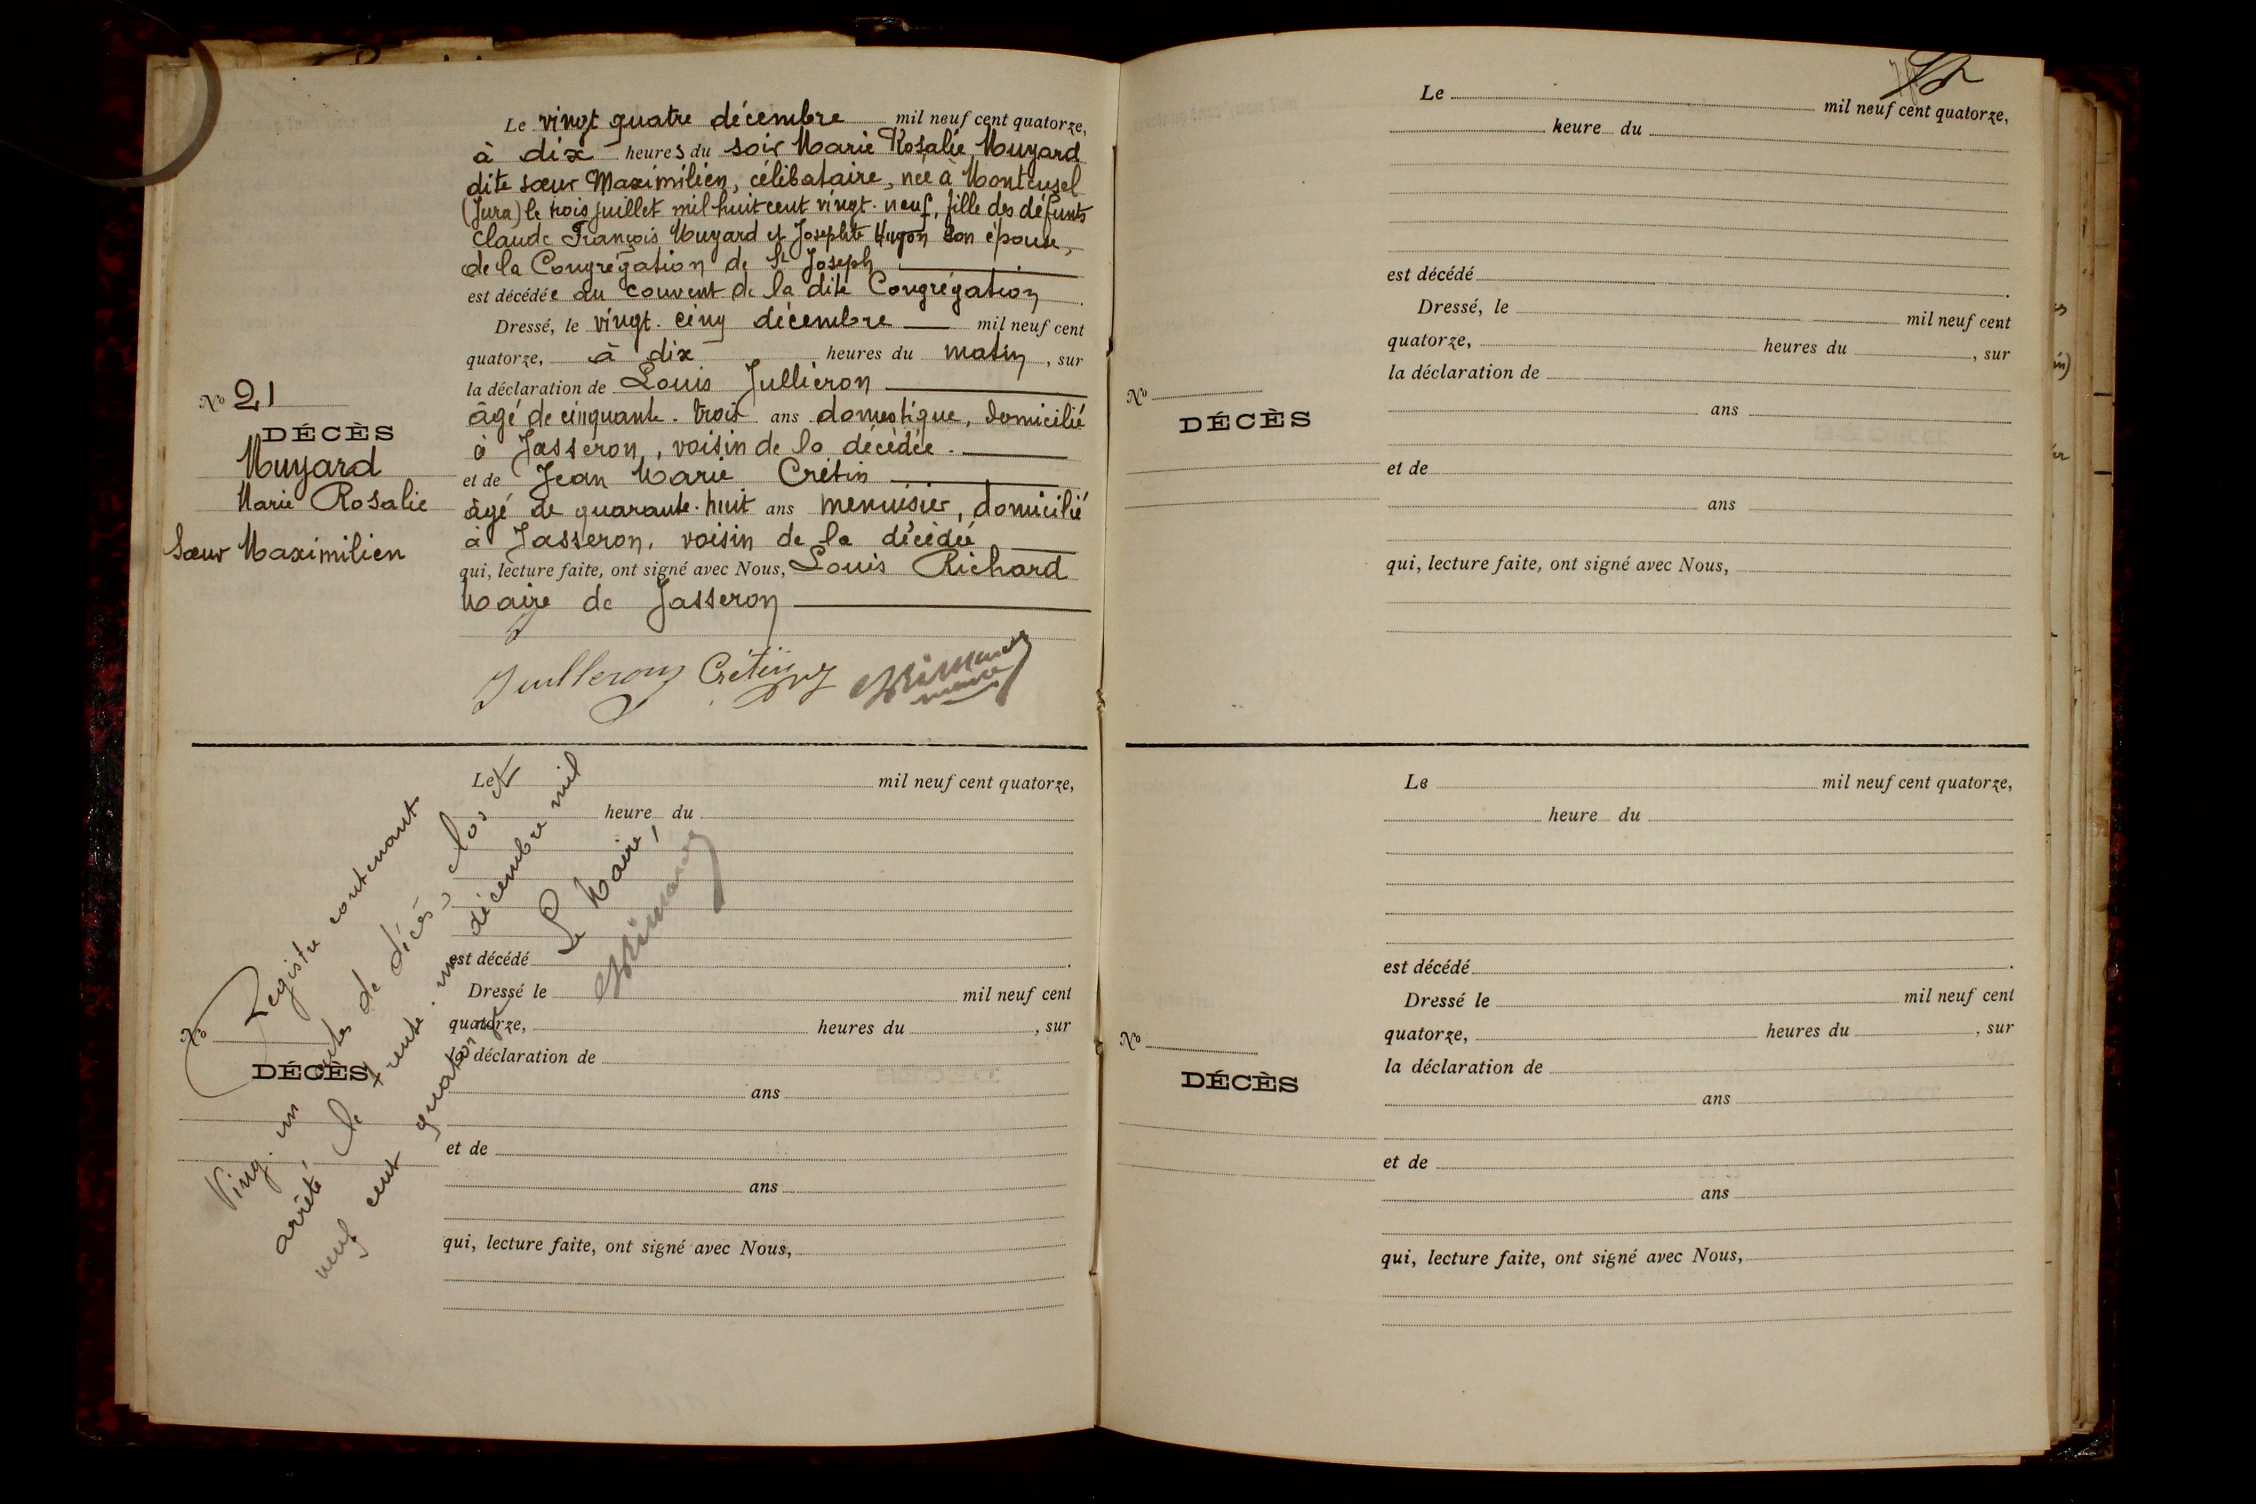 Le vingt quatre décembre mil neuf cent quatorze,
à dix heures du soir Marie Rosalie Muyard
dite sœur Maximilien, célibataire, née à Montcusel
(Jura) le trois juillet mil huit cent vingt-neuf, fille des défunts
Claude François Muyard et Josephte Hugon son épouse,
de la Congrégation de St Joseph
est décédée au couvent de la dite Congrégation.
Dressé, le vingt-cinq décembre mil neuf cent
quatorze, à dix heures du matin, sur
la déclaration de Louis Jullieron
âgé de cinquante-trois ans domestique, domicilié
à Jasseron, voisin de la décédée.
et de Jean Marie Crétin
âgé de quarante-huit ans menuisier, domicilié
à Jasseron, voisin de la décédée
qui, lecture faite, ont signé avec Nous, Louis Richard
Maire de Jasseron
Juilleron Crétin
No 21
DÉCÈS
Muyard
Marie Rosalie
Sœur Maximilien
Le mil neuf cent quatorze,
heure du
est décédé .
Dressé le mil neuf cent
quatorze, heures du , sur
la déclaration de
ans
et de
ans
qui, lecture faite, ont signé avec Nous,
No
DÉCÈS
Registre contenant
Ving-un actes de décès, clos et
arrêté le trente-un décembre mil
neuf cent quatorze
Le Maire,
Le mil neuf cent quatorze,
heure du
est décédé .
Dressé, le mil neuf cent
quatorze, heures du , sur
la déclaration de
ans
et de
ans
qui, lecture faite, ont signé avec Nous,
No
DÉCÈS
Le mil neuf cent quatorze,
heure du
est décédé .
Dressé le mil neuf cent
quatorze, heures du , sur
la déclaration de
ans
et de
ans
qui, lecture faite, ont signé avec Nous,
No
DÉCÈS